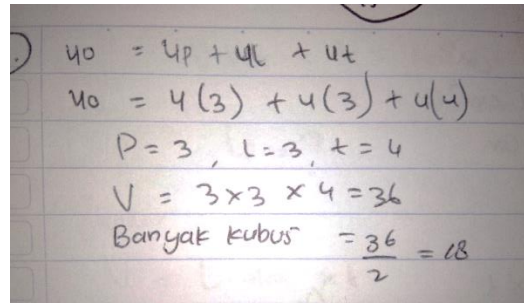 40 = 4p + 4l + 4t
40 = 4(3) + 4(3) + 4(4)
P = 3, l = 3, t = 4
V = 3 × 3 × 4 = 36
Banyak kubus = 36/2 = 18